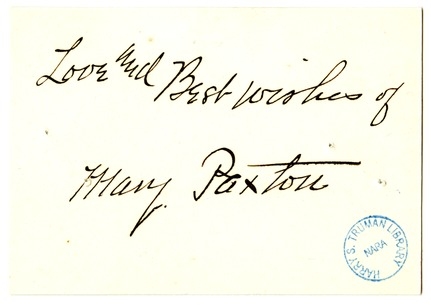 Love and Best wishes of
Mary Paxton
HARRY S. TRUMAN LIBRARY
NARA